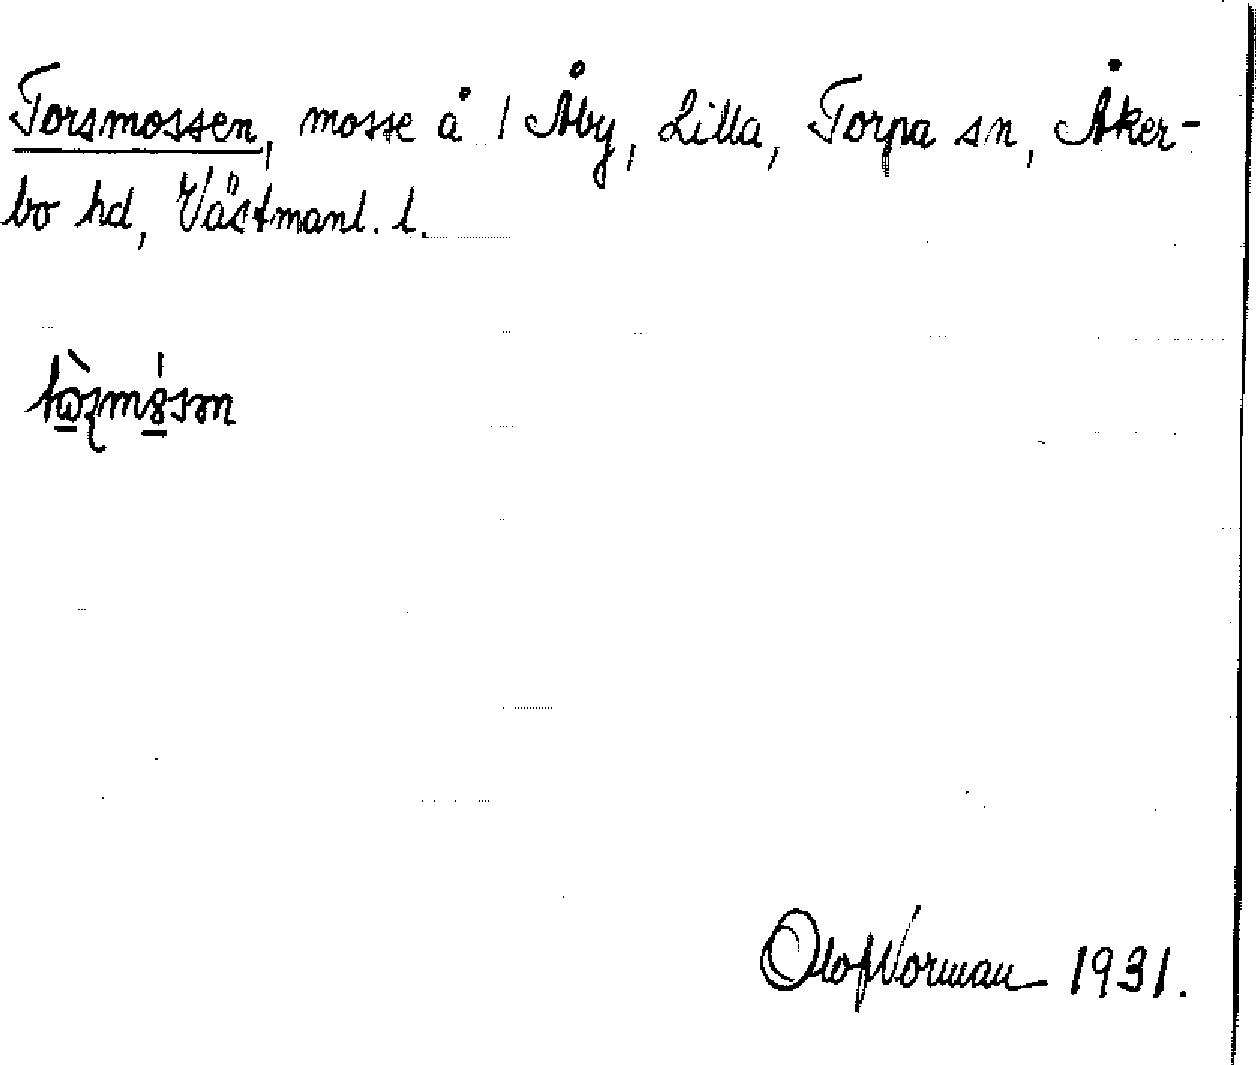 Torsmossen, mosse å / Åby, Lilla, Torpa sn, Åker-
bo hd, Västmanl. l.
Olof Norman 1931.